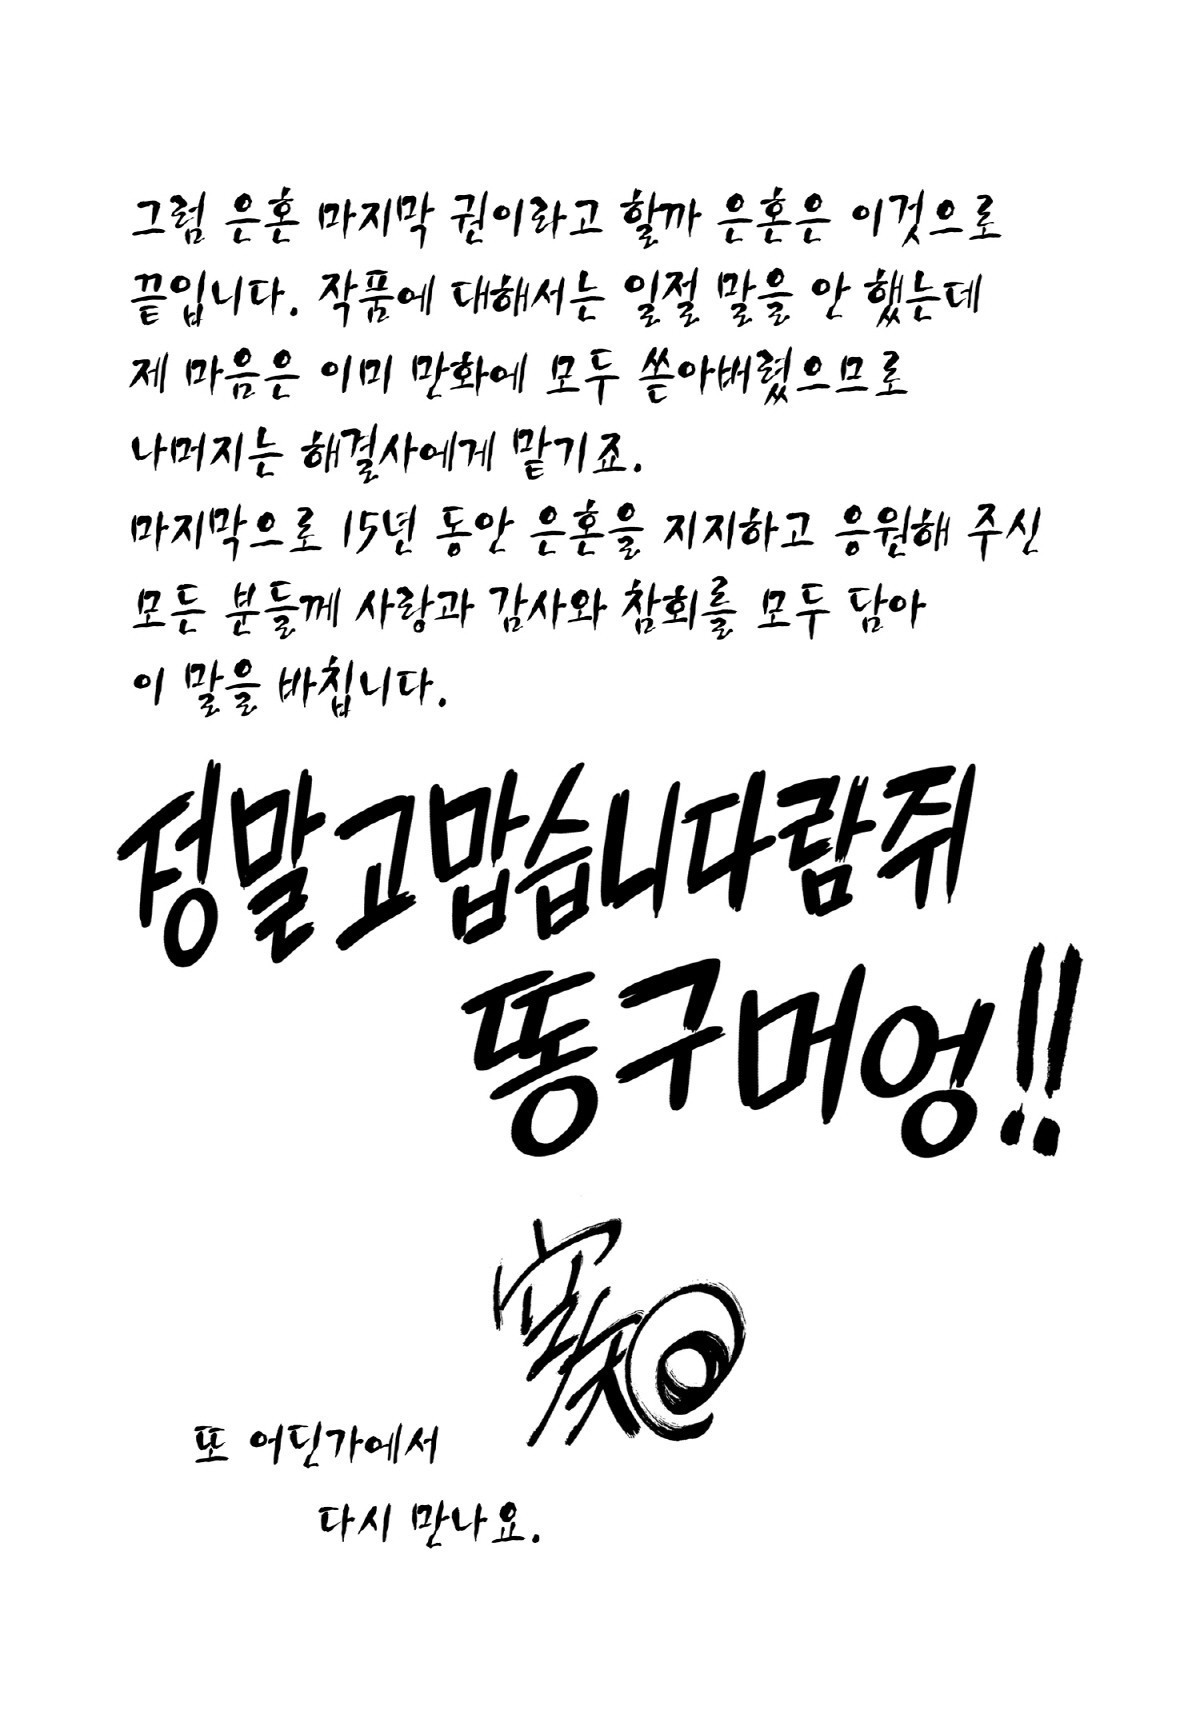 그럼 은혼 마지막 권이라고 할까 은혼은 이것으로
끝입니다. 작품에 대해서는 일절 말을 안 했는데
제 마음은 이미 만화에 모두 쏟아버렸으므로
나머지는 해결사에게 맡기죠.
마지막으로 15년 동안 은혼을 지지하고 응원해 주신
모든 분들께 사랑과 감사와 참회를 모두 담아
이 말을 바칩니다.
정말 고맙습니다람쥐
똥구머엉!!
空知
또 어딘가에서
다시 만나요.